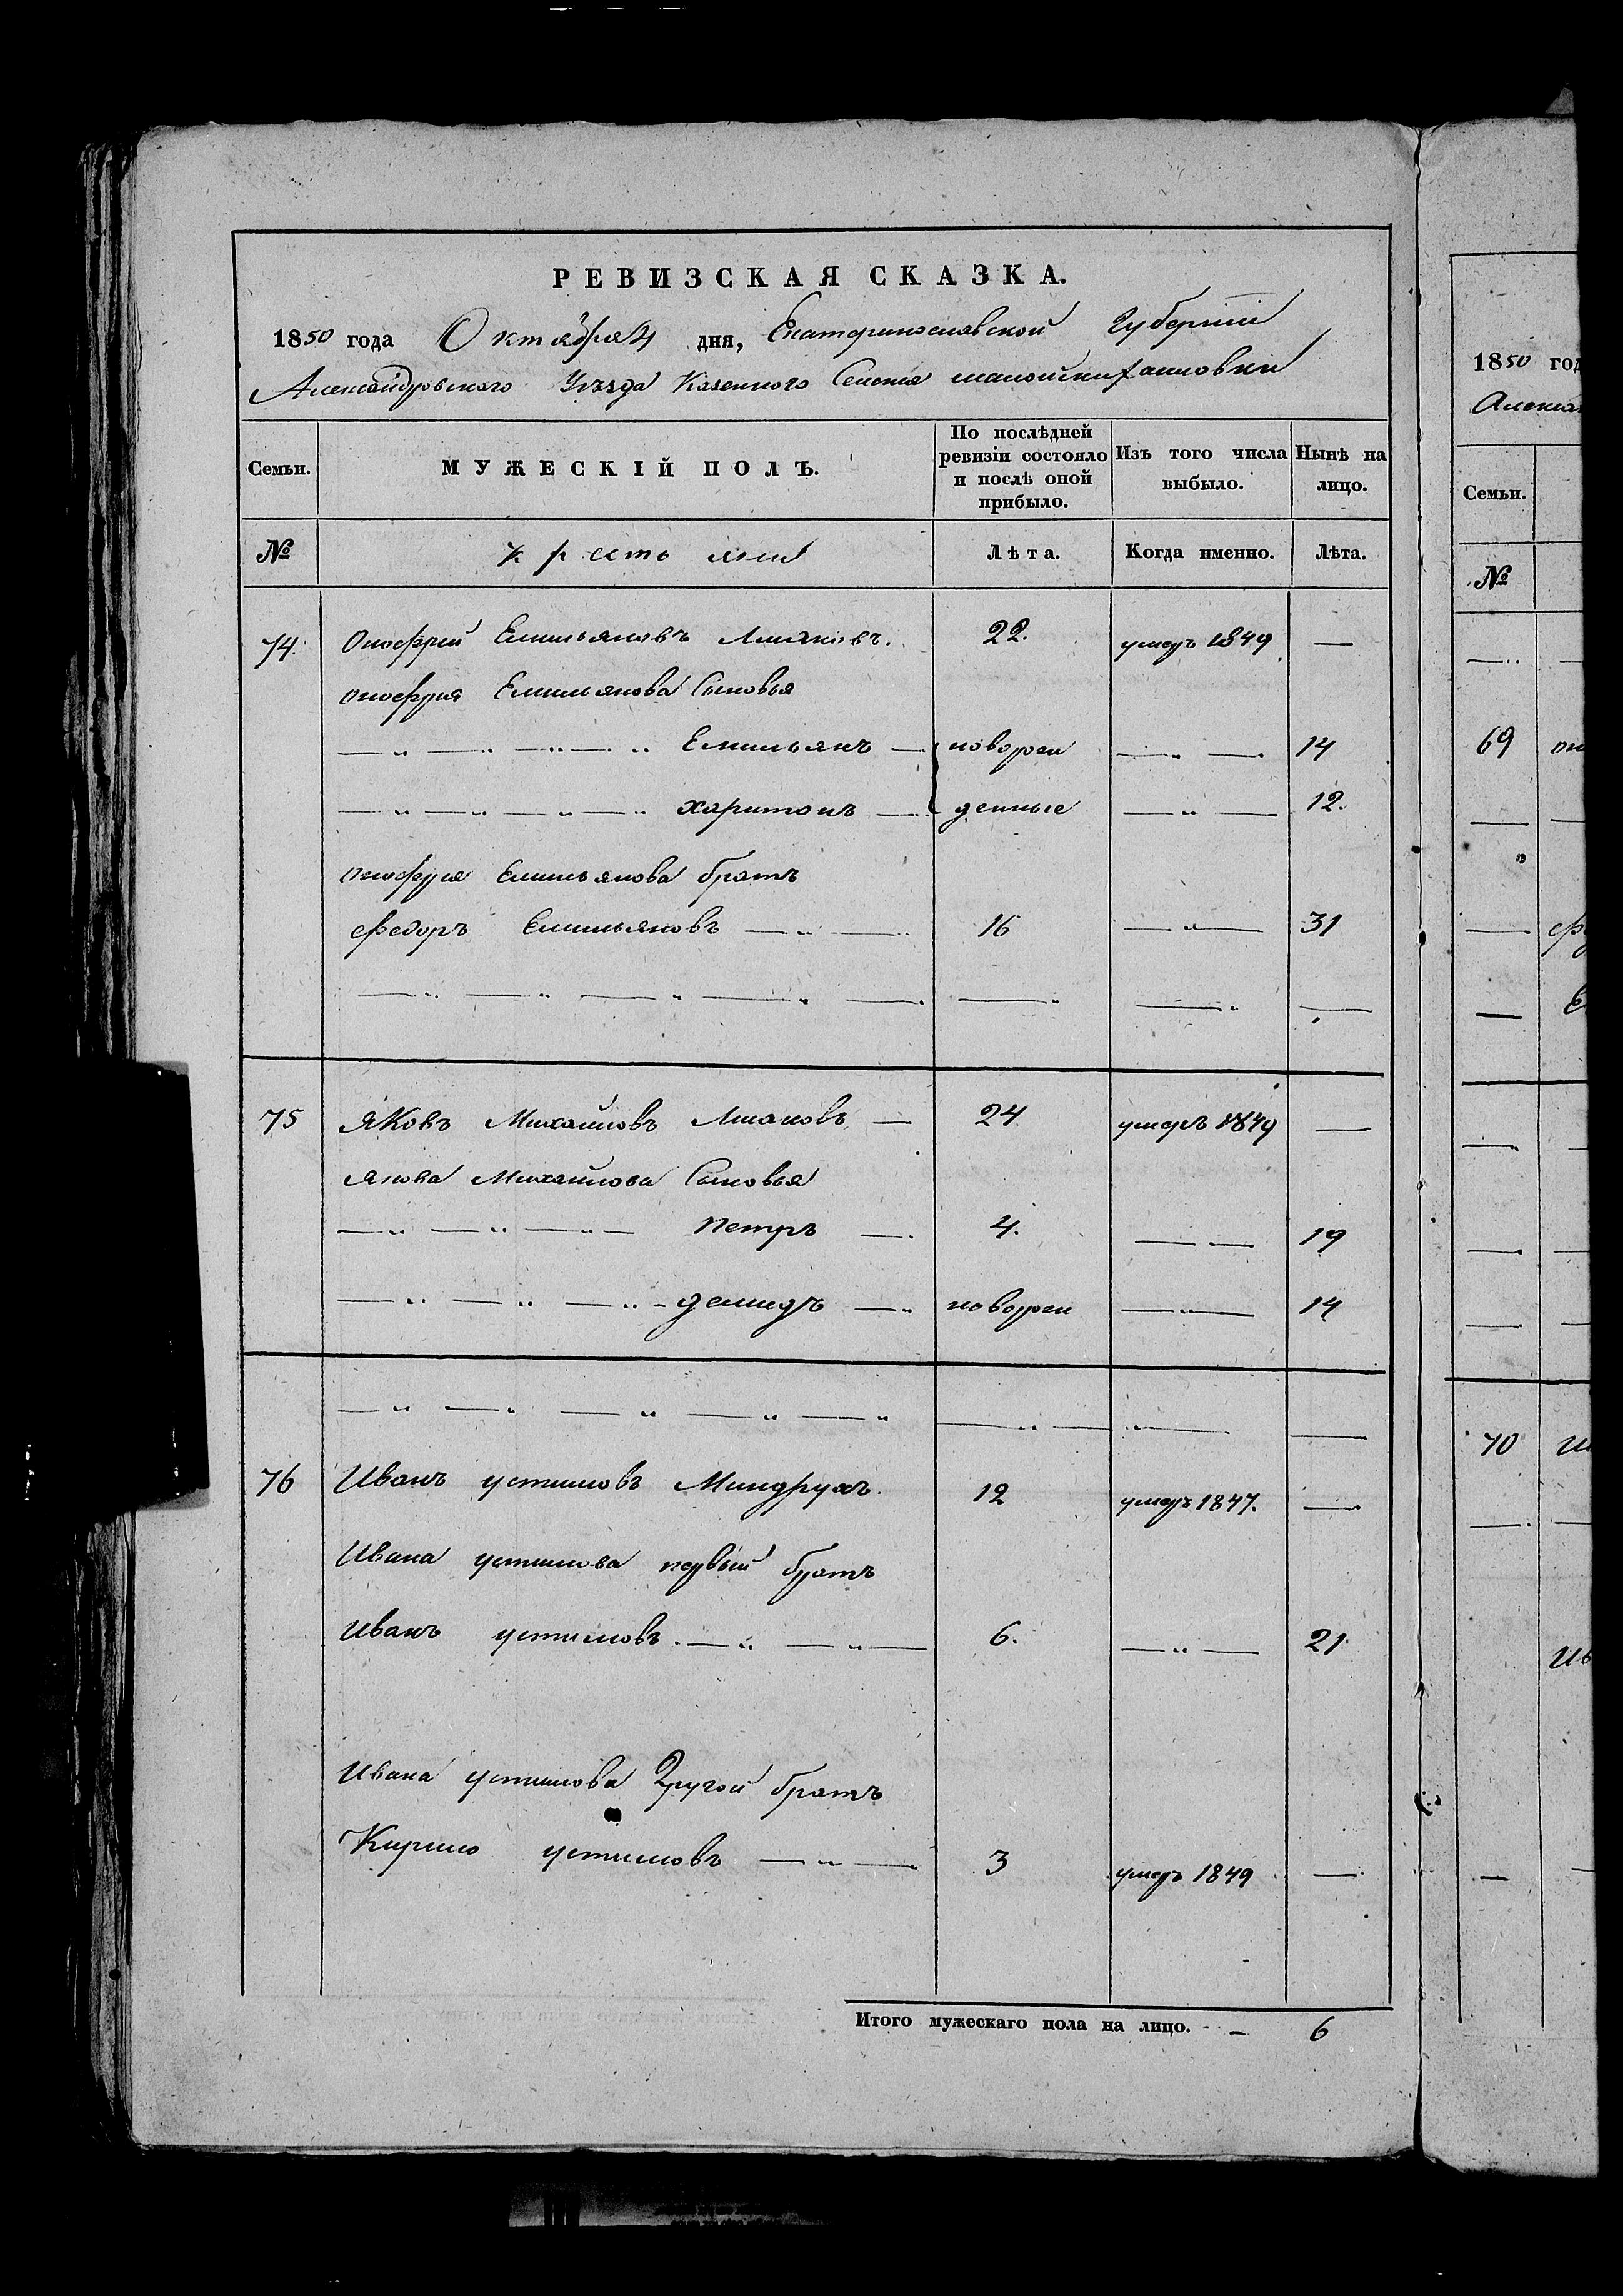 РЕВИЗСКАЯ СКАЗКА.
1850 года Октября 4 дня, Екатеринославской Губернии
Александровского Уѣзда Казенного Селения
Семьи. МУЖЕСКІЙ ПОЛЪ. По послѣдней ревизіи состояло и послѣ оной прибыло. Изъ того числа выбыло. Нынѣ на лицо.
№ крестьяни Лѣта. Когда именно. Лѣта.
74. Онофрий Емильяновъ 22. умеръ 1849 —
Онофрия Емильянова Сыновья
— " — " — " — " Емильянъ — новорож — " — 14
— " — " — " — " Харитонъ — денные — " — 12.
Онофрия Емильянова братъ
Федоръ Емильяновъ — " — 16 — " — 31
— " — " — " — " — — " — " —
75 Яковъ Михайловъ — 24 умеръ 1849 —
Якова Михайлова Сыновья
— " — " — " — Петръ — 4. — — 19
— " — " — " - Демидъ — " новорож — " — 14
— " — " — " — " — " — " — " — —
76 Иванъ устимовъ Миндрухъ. 12 умеръ 1847. —
Ивана устимова первый братъ
Иванъ устимовъ. — " — " — 6. — " — 21
Ивана устимова Другой братъ
Кирило устимовъ — " — 3 умеръ 1849 —
Итого мужескаго пола на лицо. - 6
1850 год
Алекса
Семьи.
№
69 он
70 И
Ив